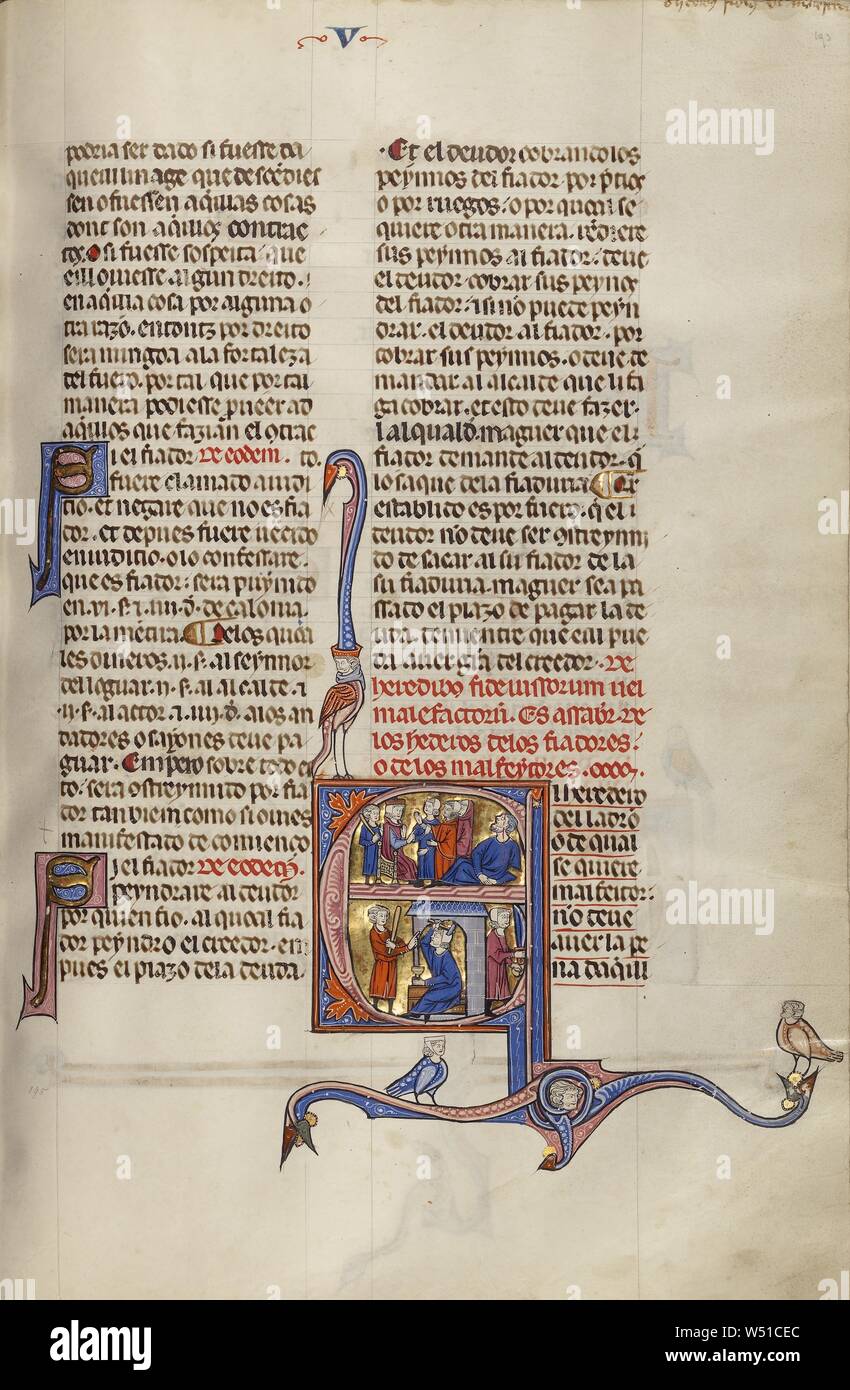 V
podria ser dado si fuesse da
quell linage que descẽdies
sen o fuessen aqͥllas cosas
dont son aqͥllos contrac
tos. o si fuesse sospeita que
eill ouiesse algun dreito.
en aqͥlla cosa por alguna o
tra razõ. entonz por dreito
sera mingoa a la fortaleza
del fuero. por tal que por tal
manera podiesse
aqͥllos que fazian el
Si el fiador De eodem. to.
fuere clamado a iudi
cio. et negare que no es fia
dor. et depues fuere uẽcido
en iudicio. o lo confessare.
que es fiador: sera puynido
en .vi. s. de calonia.
por la mẽtira. De los
les dineros. ii. s. al seynnor
del loguar. ii. s. al alcalde. ⁊
.ii. s. al actor. ⁊ .iiii. d. a los an
dadores o sayones deue pa
guar. Empero sobre todo es
to. sera por fia
dor tan bien como si o uies
manifestado de comienço
Si el fiador De eodem.
peyndrare al deudor
por quien fio. al qual fia
dor peyndro el creedor. em
pues el plazo de la deuda.
Et el deudor cobrando los
peynnos del fiador. por
o por ruegos. o por quen se
quiere otra manera.
sus peynnos al fiador. deue
el deudor cobrar sus
del fiador. ⁊ si nõ puede peyn
drar. el deudor al fiador. por
cobrar sus peynnos. o deue de
mandar al alcalde que li fa
ga cobrar. et esto deue fazer.
maguer que el
fiador demande al deudor. q̃
lo saque de la fiaduria. Ca
establido es por fuero. q̃ el
deudor nõ deue ser
do de sacar al su fiador de la
su fiaduria. maguer sea pa
ssado el plazo de pagar la de
uda. demientre que eill pue
da del creedor. De
heredibus fideiussorum uel
malefactorũ. Es assaber. de
los hederos de los fiadores.
o de los malfeytores.
El heredero
del ladrõ
o de qual
se quiere
malfeitor:
nõ deue
auer la pe
na daqͥll
193
195
alamy
Image ID: W51CEC
www.alamy.com